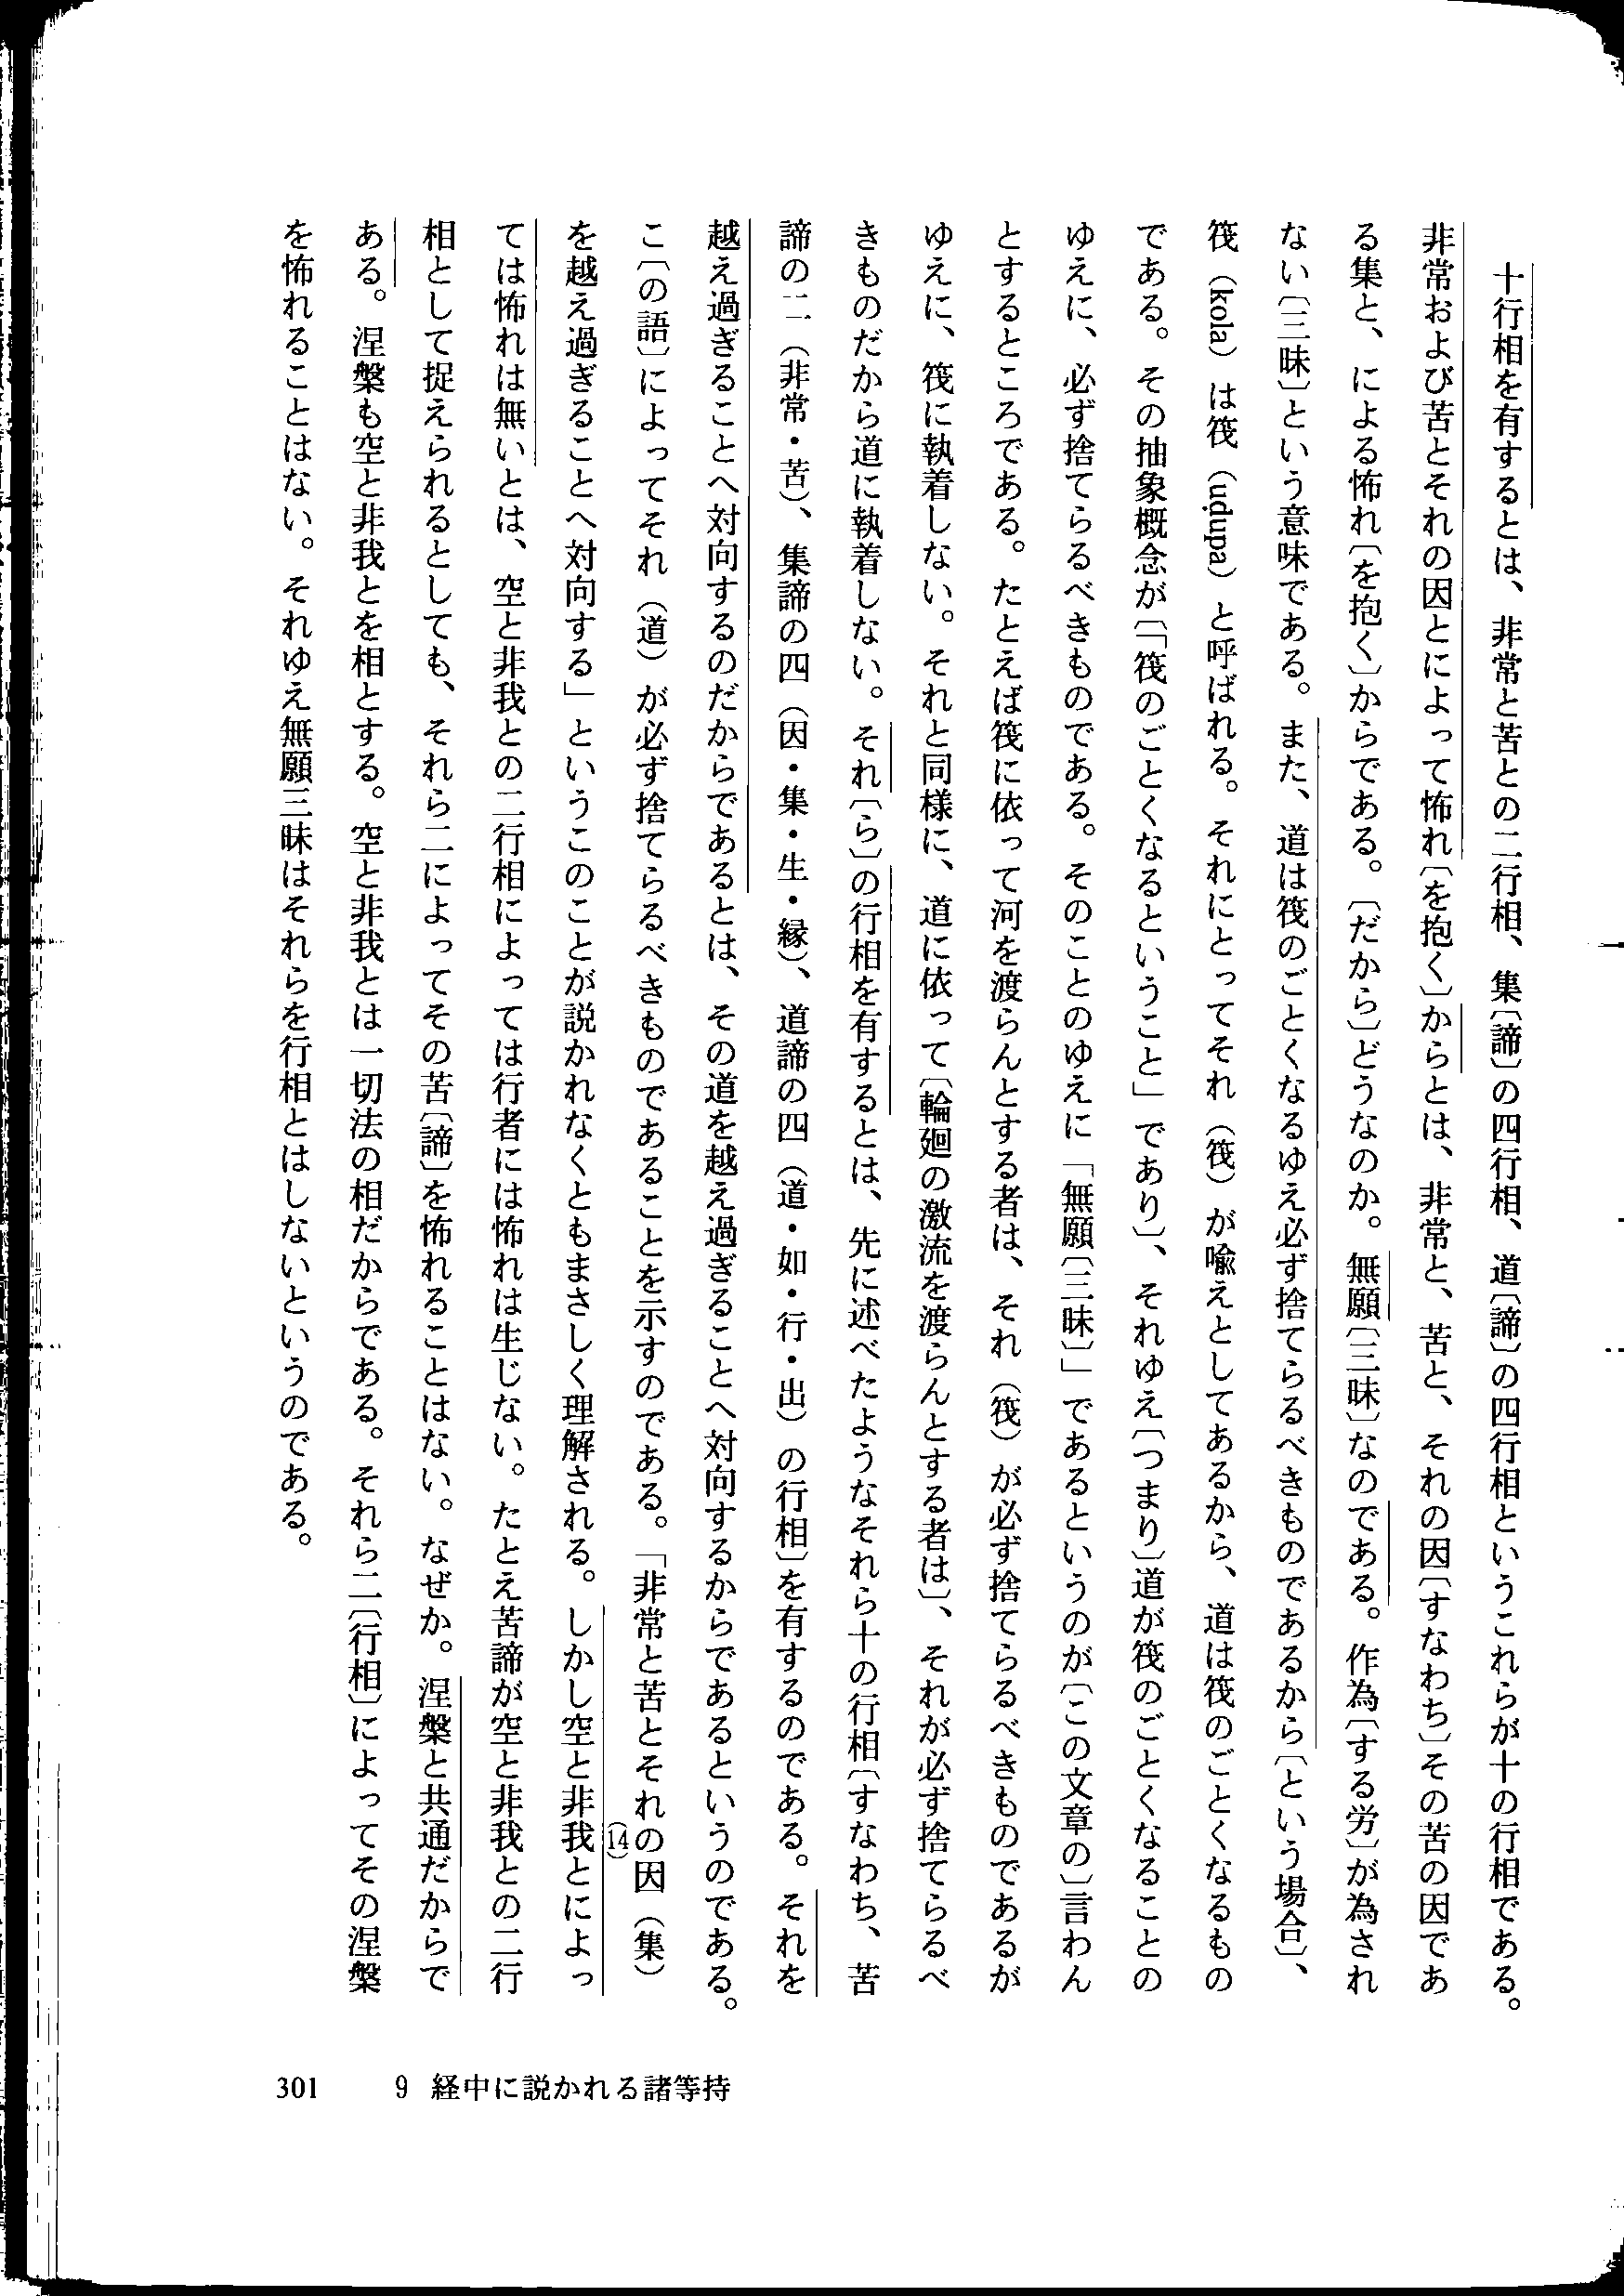 十行相を有するとは、非常と苦との二行相、集〔諦〕の四行相、道〔諦〕の四行相というこれらが十の行相である。
非常および苦とそれの因とによって怖れ〔を抱く〕からとは、非常と、苦と、それの因〔すなわち〕その苦の因であ
る集と、による怖れ〔を抱く〕からである。〔だから〕どうなのか。無願〔三昧〕なのである。作為〔する労〕が為され
ない〔三昧〕という意味である。また、道は筏のごとくなるゆえ必ず捨てらるべきものであるから〔という場合〕、
筏（kola）は筏（uḍupa）と呼ばれる。それにとってそれ（筏）が喩えとしてあるから、道は筏のごとくなるもの
である。その抽象概念が〔「筏のごとくなるということ」であり〕、それゆえ〔つまり〕道が筏のごとくなることの
ゆえに、必ず捨てらるべきものである。そのことのゆえに「無願〔三昧〕」であるというのが〔この文章の〕言わん
とするところである。たとえば筏に依って河を渡らんとする者は、それ（筏）が必ず捨てらるべきものであるが
ゆえに、筏に執着しない。それと同様に、道に依って〔輪廻の激流を渡らんとする者は〕、それが必ず捨てらるべ
きものだから道に執着しない。それ〔ら〕の行相を有するとは、先に述べたようなそれら十の行相〔すなわち、苦
諦の二（非常・苦）、集諦の四（因・集・生・縁）、道諦の四（道・如・行・出）の行相〕を有するのである。それを
越え過ぎることへ対向するのだからであるとは、その道を越え過ぎることへ対向するからであるというのである。
こ〔の語〕によってそれ（道）が必ず捨てらるべきものであることを示すのである。「非常と苦とそれの因（集）
を越え過ぎることへ対向する」ということが説かれなくともまさしく理解される。(14)しかし空と非我とによっ
ては怖れは無いとは、空と非我との二行相によっては行者には怖れは生じない。たとえ苦諦が空と非我との二行
相として捉えられるとしても、それら二によってその苦〔諦〕を怖れることはない。なぜか。涅槃と共通だからで
ある。涅槃も空と非我とを相とする。空と非我とは一切法の相だからである。それら二〔行相〕によってその涅槃
を怖れることはない。それゆえ無願三昧はそれらを行相とはしないというのである。
301　9 経中に説かれる諸等持